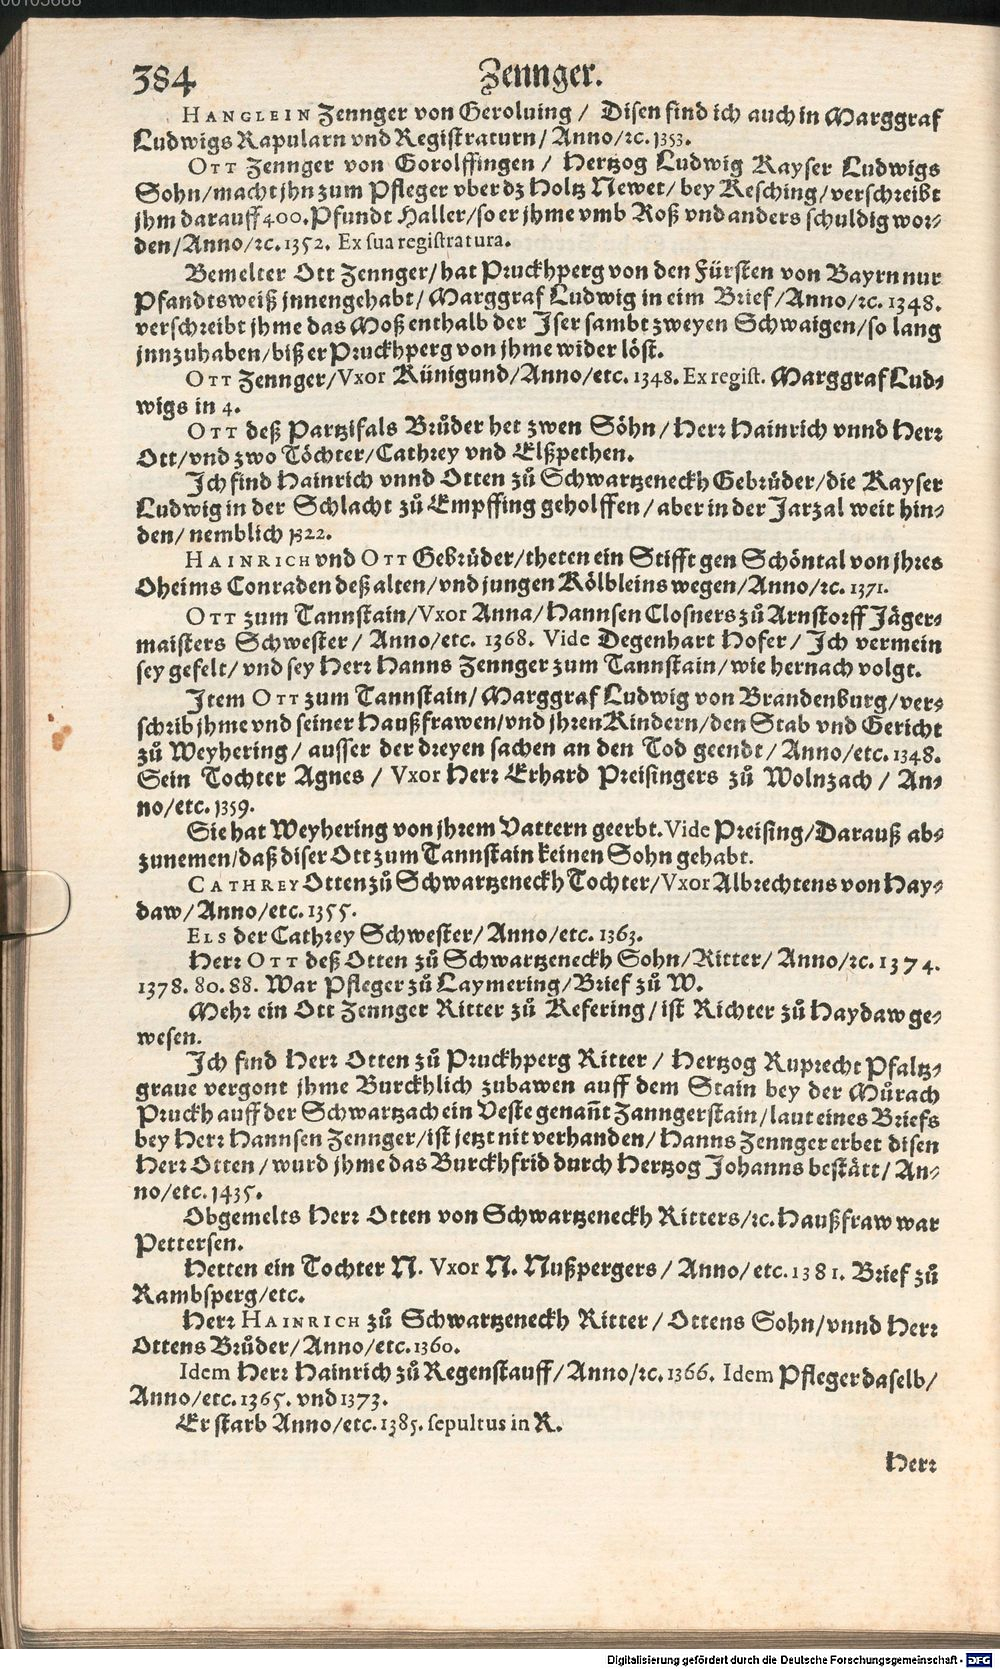 00103688
384 Zennger.
HANGLEIN Zennger von Geroluing / Disen find ich auch in Marggraf
Ludwigs Rapularn vnd Registraturn / Anno / ꝛc. 1353.
OTT Zennger von Gorolffingen / Hertzog Ludwig Kayser Ludwigs
Sohn / macht jhn zum Pfleger vber dz Holtz Newet / bey Kesching / verschreibt
jhm darauff 400. Pfundt Haller / so er jhme vmb Roß vnd anders schuldig wor-
den / Anno / ꝛc. 1352. Ex sua registratura.
Bemelter Ott Zennger / hat Pruckhperg von den Fürsten von Bayrn nur
Pfandtsweiß jnnengehabt / Marggraf Ludwig in eim Brief / Anno / ꝛc. 1348.
verschreibt jhme das Moß enthalb der Iser sambt zweyen Schwaigen / so lang
jnnzuhaben / biß er Pruckhperg von jhme wider löst.
OTT Zennger / Vxor Künigund / Anno / etc. 1348. Ex regist. Marggraf Lud-
wigs in 4.
OTT deß Partzifals Brůder het zwen Söhn / Herr Hainrich vnnd Herr
Ott / vnd zwo Töchter / Cathrey vnd Elßpethen.
Ich find Hainrich vnnd Otten zů Schwartzeneckh Gebrůder / die Kayser
Ludwig in der Schlacht zů Empffing geholffen / aber in der Jarzal weit hin-
den / nemblich 1322.
HAINRICH vnd OTT Gebrůder / theten ein Stifft gen Schöntal von jhres
Oheims Conraden deß alten / vnd jungen Kölbleins wegen / Anno / ꝛc. 1371.
OTT zum Tannstain / Vxor Anna / Hannsen Closners zů Arnstorff Jäger-
maisters Schwester / Anno / etc. 1368. Vide Degenhart Hofer / Ich vermein
sey gefelt / vnd sey Herr Hanns Zennger zum Tannstain / wie hernach volgt.
Item OTT zum Tannstain / Marggraf Ludwig von Brandenburg / ver-
schrib jhme vnd seiner Haußfrawen / vnd jhren Kindern / den Stab vnd Gericht
zů Weyhering / ausser der dreyen sachen an den Tod geendt / Anno / etc. 1348.
Sein Tochter Agnes / Vxor Herr Erhard Preisingers zů Wolnzach / An-
no / etc. 1359.
Sie hat Weyhering von jhrem Vattern geerbt. Vide Preising / Darauß ab-
zunemen / daß diser Ott zum Tannstain keinen Sohn gehabt.
CATHREY Otten zů Schwartzeneckh Tochter / Vxor Albrechtens von Hay-
daw / Anno / etc. 1355.
ELS der Cathrey Schwester / Anno / etc. 1363.
Herr OTT deß Otten zů Schwartzeneckh Sohn / Ritter / Anno / ꝛc. 1374.
1378. 80. 88. War Pfleger zů Laymering / Brief zů W.
Mehr ein Ott Zennger Ritter zů Kefering / ist Richter zů Haydaw ge-
wesen.
Ich find Herr Otten zů Pruckhperg Ritter / Hertzog Ruprecht Pfaltz-
graue vergont jhme Burckhlich zubawen auff dem Stain bey der Můrach
Pruckh auff der Schwartzach ein Veste genañt Zanngerstain / laut eines Briefs
bey Herr Hannsen Zennger / ist jetzt nit verhanden / Hanns Zennger erbet disen
Herr Otten / wurd jhme das Burckhfrid durch Hertzog Johanns bestätt / An-
no / etc. 1435.
Obgemelts Herr Otten von Schwartzeneckh Ritters / ꝛc. Haußfraw war
Pettersen.
Hetten ein Tochter N. Vxor N. Nußpergers / Anno / etc. 1381. Brief zů
Rambsperg / etc.
Herr HAINRICH zů Schwartzeneckh Ritter / Ottens Sohn / vnnd Herr
Ottens Brůder / Anno / etc. 1360.
Idem Herr Hainrich zů Regenstauff / Anno / ꝛc. 1366. Idem Pfleger daselb /
Anno / etc. 1365. vnd 1373.
Er starb Anno / etc. 1385. sepultus in R.
Herr
Digitalisierung gefördert durch die Deutsche Forschungsgemeinschaft - DFG